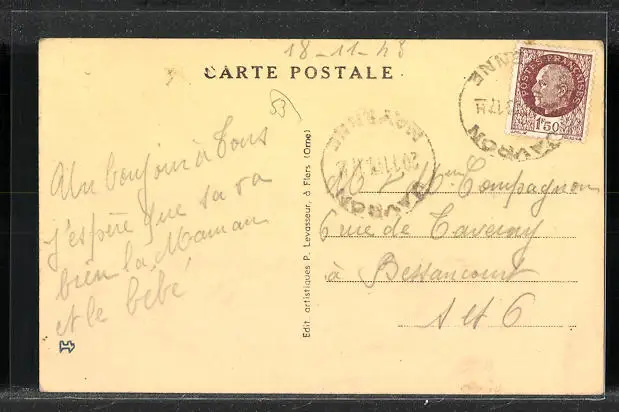 18-11-48
CARTE POSTALE
53
POSTES FRANÇAISES
1F50
JAVRON
MAYENNE
JAVRON
MAYENNE
Un bonjour à Tous
j'espère que sa va
bien la Maman
et le bébé
Edit. artistiques P. Levasseur, à Flers (Orne)
M et Mme Compagnon
6 rue de Taverny
à Bessancourt
S et O